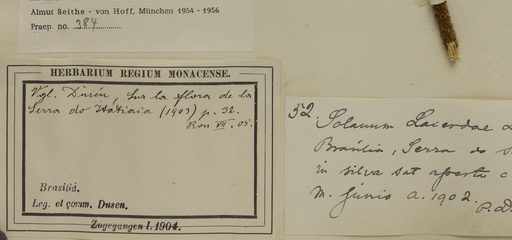 Almut Seithe - von Hoff, München 1954 - 1956
Praep. no. 384
HERBARIUM REGIUM MONACENSE.
Vgl. Dusén, Sur la flora de la
Serra do Itatiaia (1903) p. 32.
VII. 05.
Brasiliá.
Leg. et comm. Dusen.
Zugegangen I. 1904.
52. Solanum Lacerdae
Brasilia, Serra do
in silva sat aperta
m. Junio a. 1902.